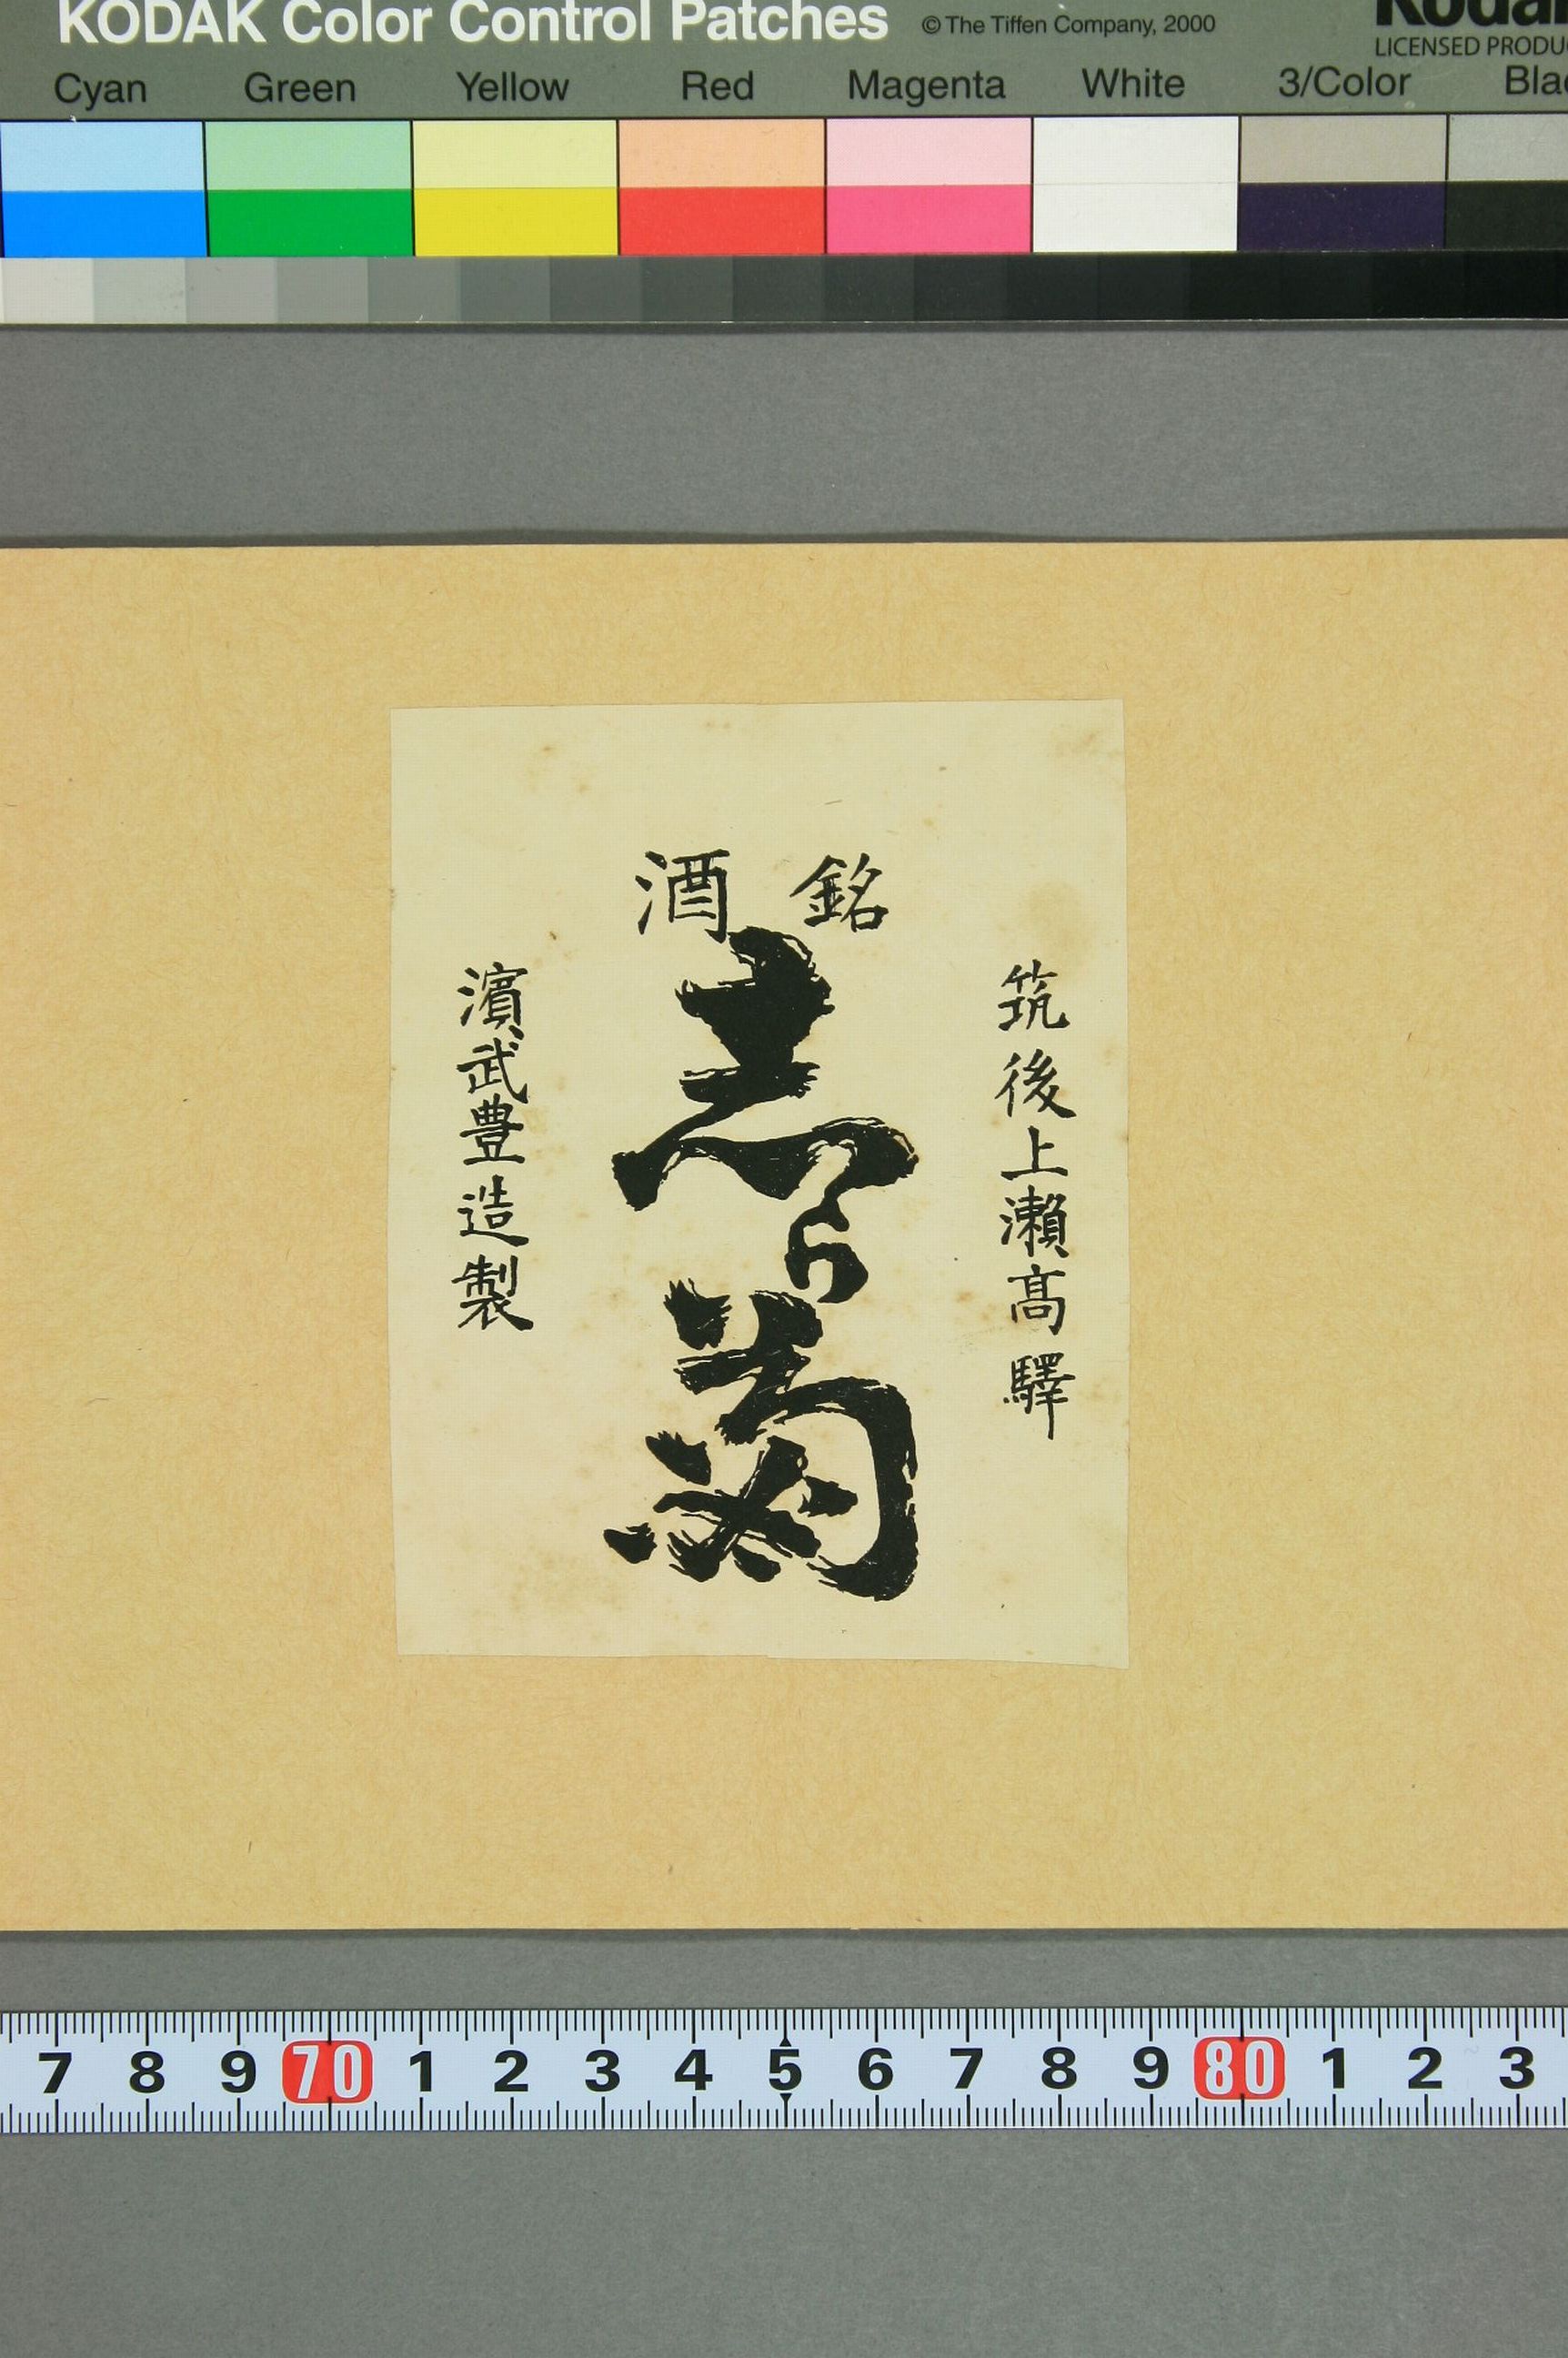 KODAK Color Control Patches © The Tiffen Company, 2000
Kodak
LICENSED PRODU
Cyan Green Yellow Red Magenta White 3/Color Blac
銘酒
筑後上瀬高驛
志ら菊
濱武豊造製
7 8 9 70 1 2 3 4 5 6 7 8 9 80 1 2 3